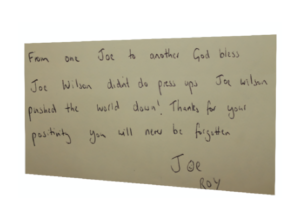 From one Joe to another God bless
Joe Wilson didnt do press ups Joe wilson
pushed the world down! Thanks for your
positivity you will never be forgotten
Joe
ROY